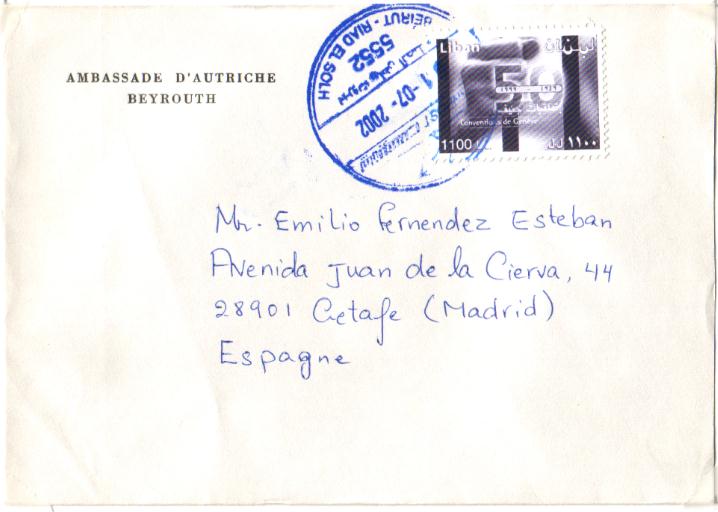 AMBASSADE D'AUTRICHE
BEYROUTH
BEIRUT - RIAD EL SOLH
5552
بيروت رياض الصلح
1-07-2002
Liban لبنان
50
1999 - 1949
اتفاقات جنيف
Conventions de Genève
1100 L.L. ١١٠٠ ل.ل.
Mr. Emilio Fernendez Esteban
Avenida Juan de la Cierva, 44
28901 Getafe (Madrid)
Espagne